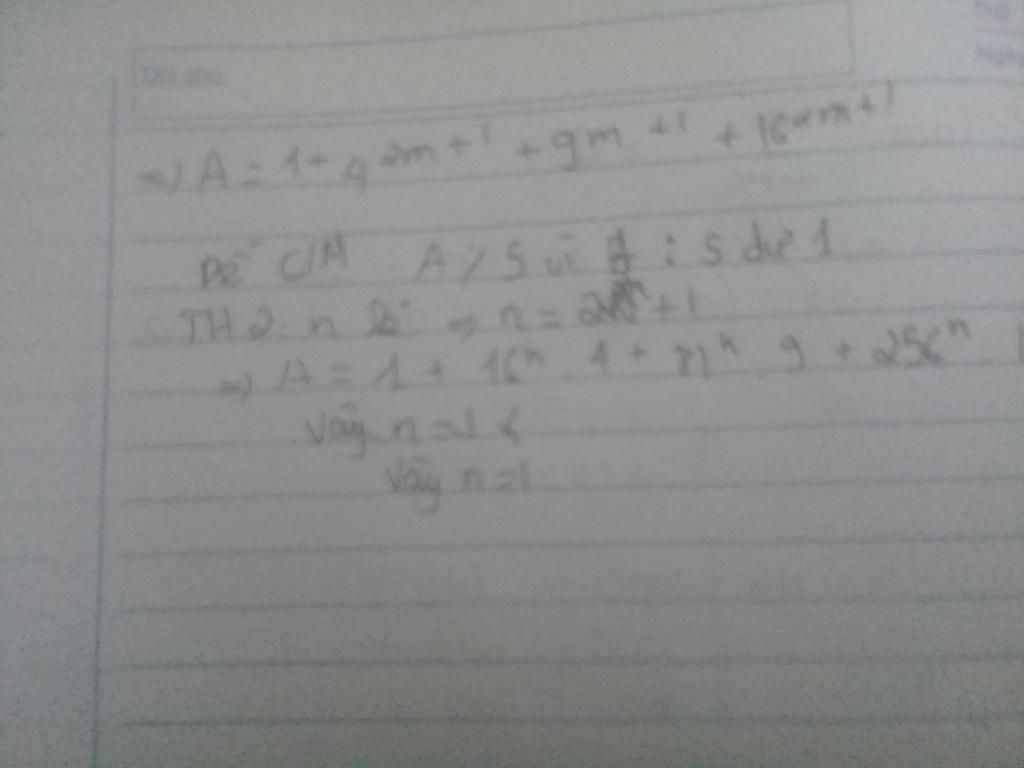 => A = 1 + 4^2m+1 + 9^m+1 + 16^2m+1
Dễ C/M A ⋮̸ 5 vì A : 5 dư 1
TH2: n lẻ => n = 2m + 1
=> A = 1 + 16^n . 4 + 81^n . 9 + 256^n . 1
Vậy n =
Vậy n = 1